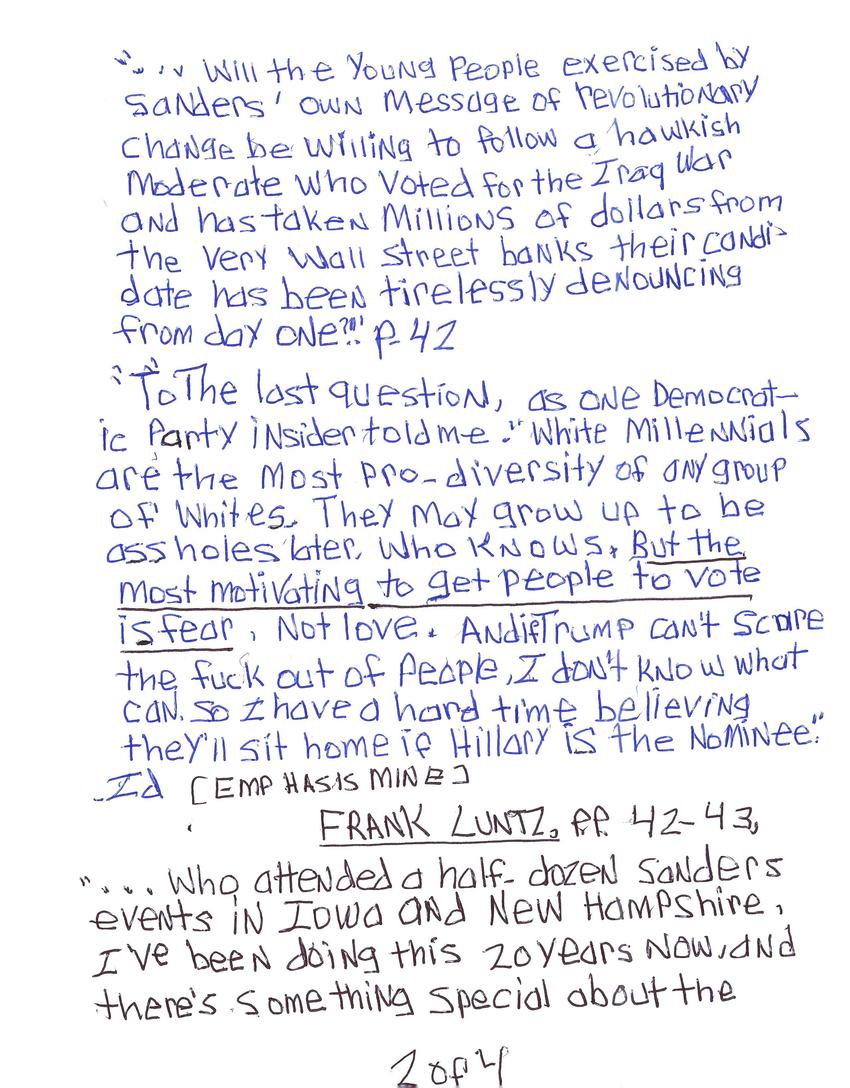 "... Will the Young People exercised by
Sanders' own message of revolutionary
change be willing to follow a hawkish
Moderate who voted for the Iraq War
and has taken Millions of dollars from
the very Wall Street banks their candi-
date has been tirelessly denouncing
from day one?!" p. 42
"To The last question, as one Democrat-
ic Party insider told me: "White Millennials
are the most pro-diversity of any group
of Whites. They may grow up to be
assholes later. Who knows. But the
most motivating to get people to vote
is fear, Not love. And if Trump can't scare
the fuck out of people, I don't know what
can. So I have a hard time believing
they'll sit home if Hillary is the Nominee."
Id [EMPHASIS MINE]
FRANK LUNTZ, pp. 42-43,
"... Who attended a half-dozen Sanders
events in Iowa and New Hampshire,
I've been doing this 20 years now, and
there's something special about the
2 of 4